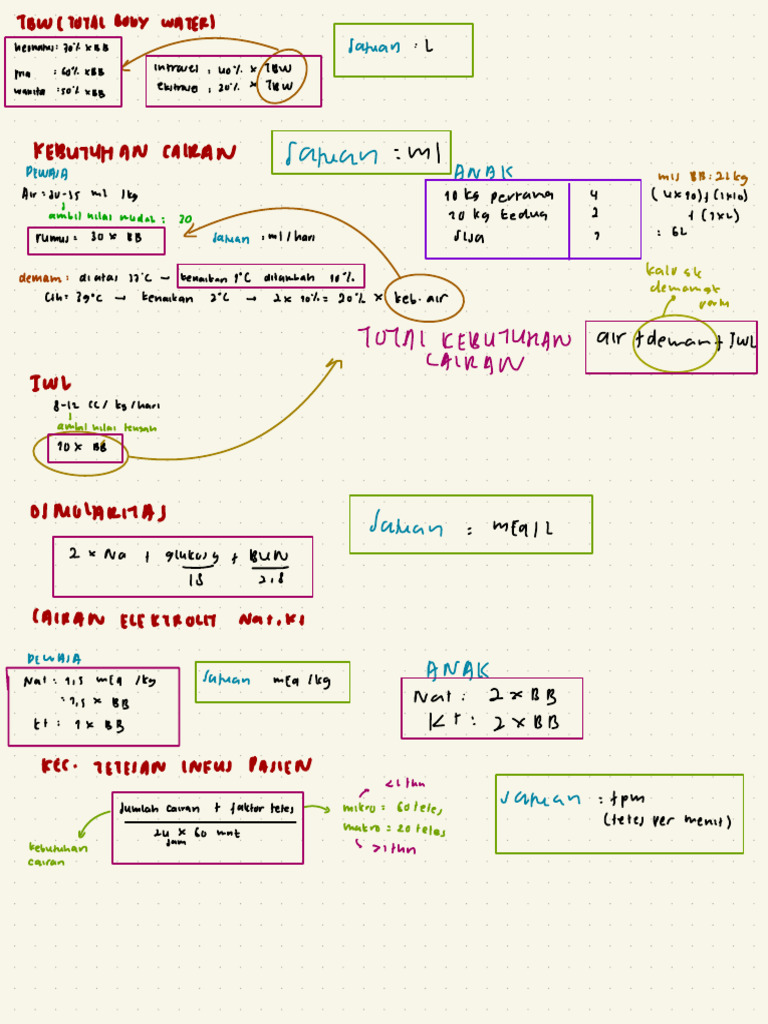 TBW (TOTAL BODY WATER)
neonatus: 70% x BB
pria : 60% x BB
wanita : 50% x BB
intrasel : 40% x TBW
ekstrasel : 20% x TBW
Satuan : L
KEBUTUHAN CAIRAN
Satuan : ml
DEWASA
Air = 30-35 ml /kg
ambil nilai mudah : 30
rumus : 30 x BB
satuan : ml/hari
ANAK
10 kg pertama 4
10 kg kedua 2
sisa 1
mis BB: 22 kg
(4x10) + (2x10)
+ (1x2)
: 62
demam : diatas 37°C → kenaikan 1°C ditambah 10%
Cth: 39°C → kenaikan 2°C → 2 x 10% = 20% x keb. air
kalo gk
demam gk
perlu
TOTAL KEBUTUHAN
CAIRAN
air + demam + IWL
IWL
8-12 CC/ kg /hari
ambil nilai tengah
10 x BB
OSMOLARITAS
2 x Na + glukosa + BUN
18 2,8
Satuan = mEq/L
CAIRAN ELEKTROLIT Nat, K+
DEWASA
Nat : 1,5 mEq /kg
: 1,5 x BB
K+ : 1 x BB
Satuan mEq /kg
ANAK
Nat : 2 x BB
K+ : 2 x BB
KEC. TETESAN INFUS PASIEN
jumlah cairan + faktor tetes
24 x 60 mnt
jam
kebutuhan
cairan
<1 thn
mikro = 60 tetes
makro = 20 tetes
>1 thn
Satuan : tpm
(tetes per menit)